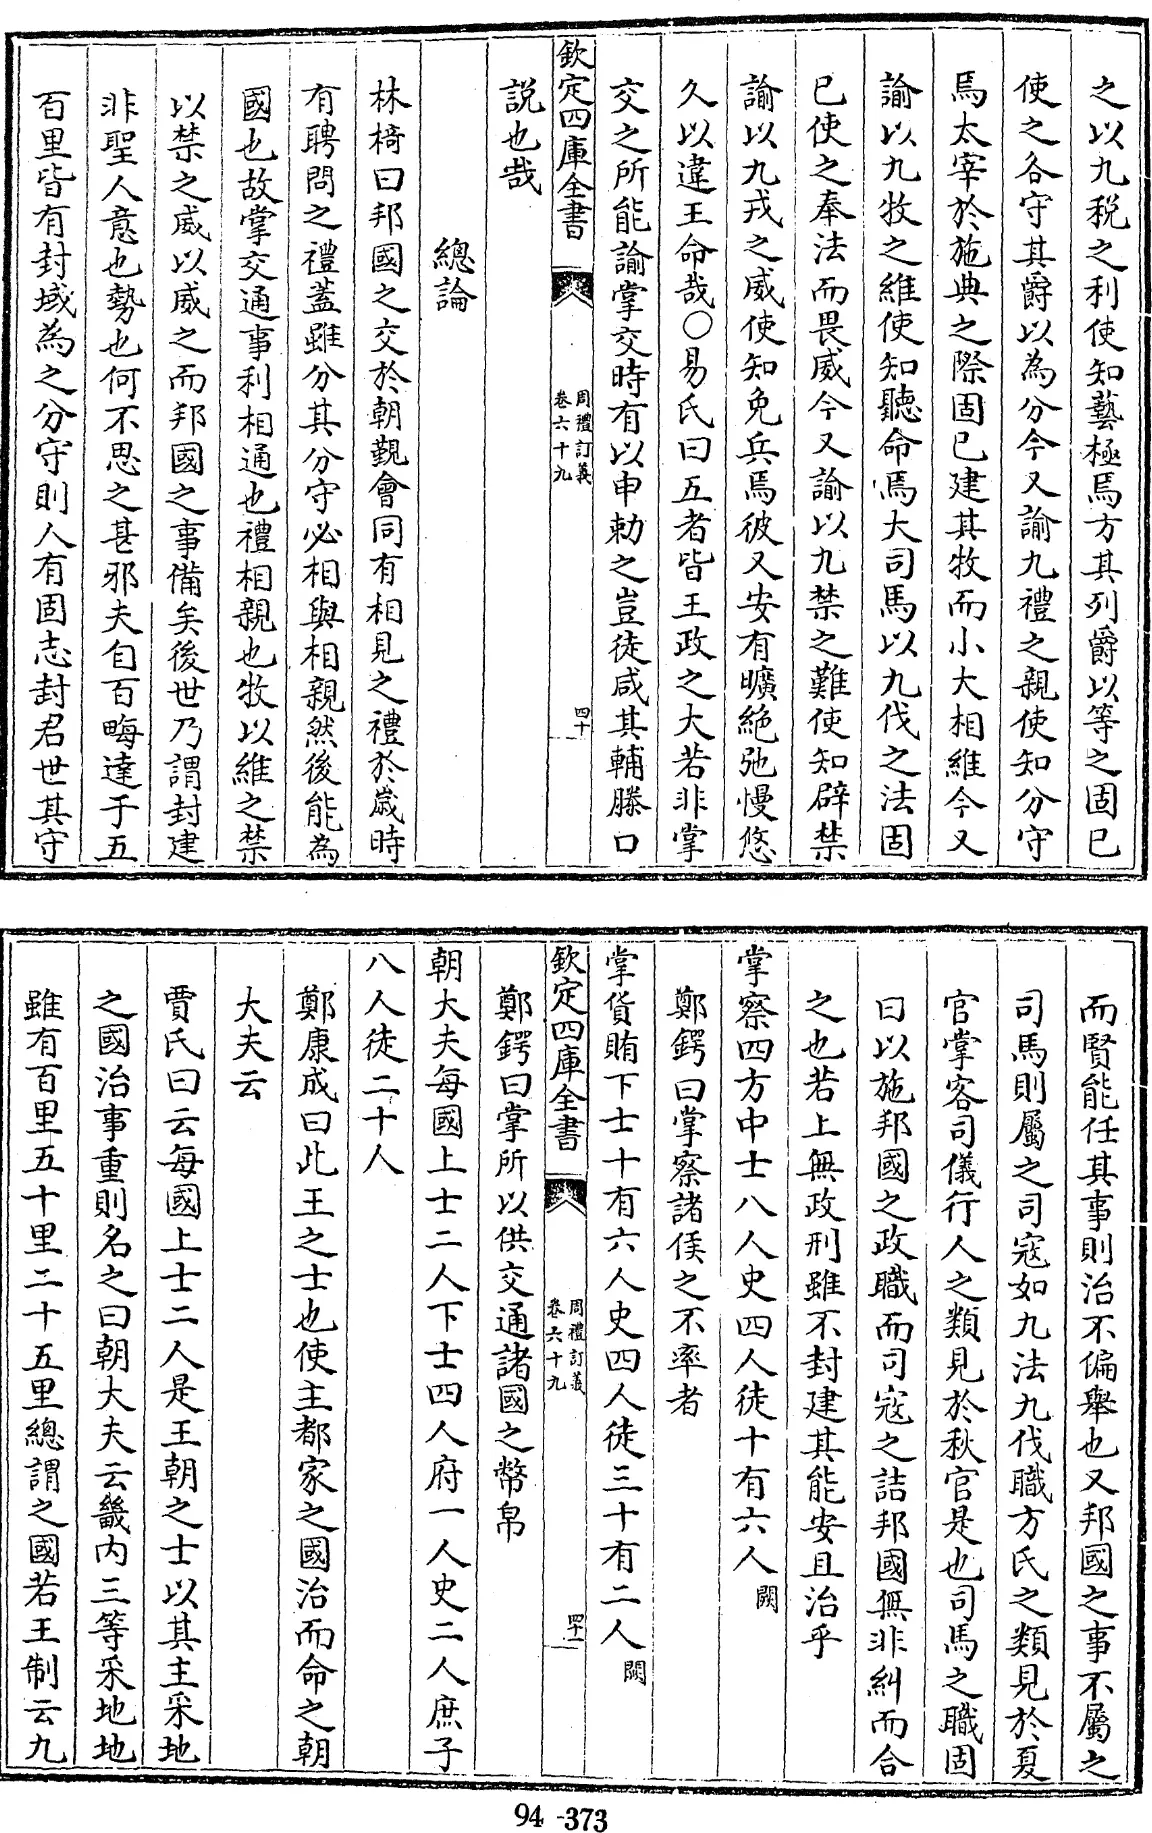 之以九税之利使知藝極焉方其列爵以等之固已
使之各守其爵以為分今又諭九禮之親使知分守
焉太宰於施典之際固已建其牧而小大相維今又
諭以九牧之維使知聽命焉大司馬以九伐之法固
已使之奉法而畏威今又諭以九禁之難使知辟禁
諭以九戎之威使知免兵焉彼又安有曠絶弛慢悠
久以違王命哉○易氏曰五者皆王政之大若非掌
交之所能諭掌交時有以申勅之豈徒咸其輔滕口
欽定四庫全書
周禮訂義
卷六十九
四十
説也哉
總論
林椅曰邦國之交於朝覲會同有相見之禮於嵗時
有聘問之禮蓋雖分其分守必相與相親然後能為
國也故掌交通事利相通也禮相親也牧以維之禁
以禁之威以威之而邦國之事備矣後世乃謂封建
非聖人意也勢也何不思之甚邪夫自百畮達于五
百里皆有封域為之分守則人有固志封君世其守
而賢能任其事則治不偏舉也又邦國之事不屬之
司馬則屬之司寇如九法九伐職方氏之類見於夏
官掌客司儀行人之類見於秋官是也司馬之職固
曰以施邦國之政職而司寇之詰邦國無非糾而合
之也若上無政刑雖不封建其能安且治乎
掌察四方中士八人史四人徒十有六人闕
鄭鍔曰掌察諸侯之不率者
掌貨賄下士十有六人史四人徒三十有二人闕
欽定四庫全書
周禮訂義
卷六十九
四十一
鄭鍔曰掌所以供交通諸國之幣帛
朝大夫每國上士二人下士四人府一人史二人庶子
八人徒二十人
鄭康成曰此王之士也使主都家之國治而命之朝
大夫云
賈氏曰云每國上士二人是王朝之士以其主采地
之國治事重則名之曰朝大夫云畿内三等采地地
雖有百里五十里二十五里總謂之國若王制云九
94-373